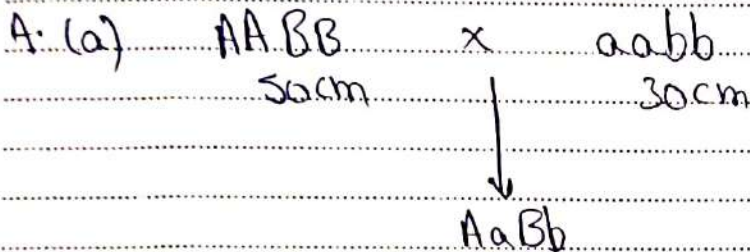 A. (a) AABB x aabb
50cm 30cm
AaBb